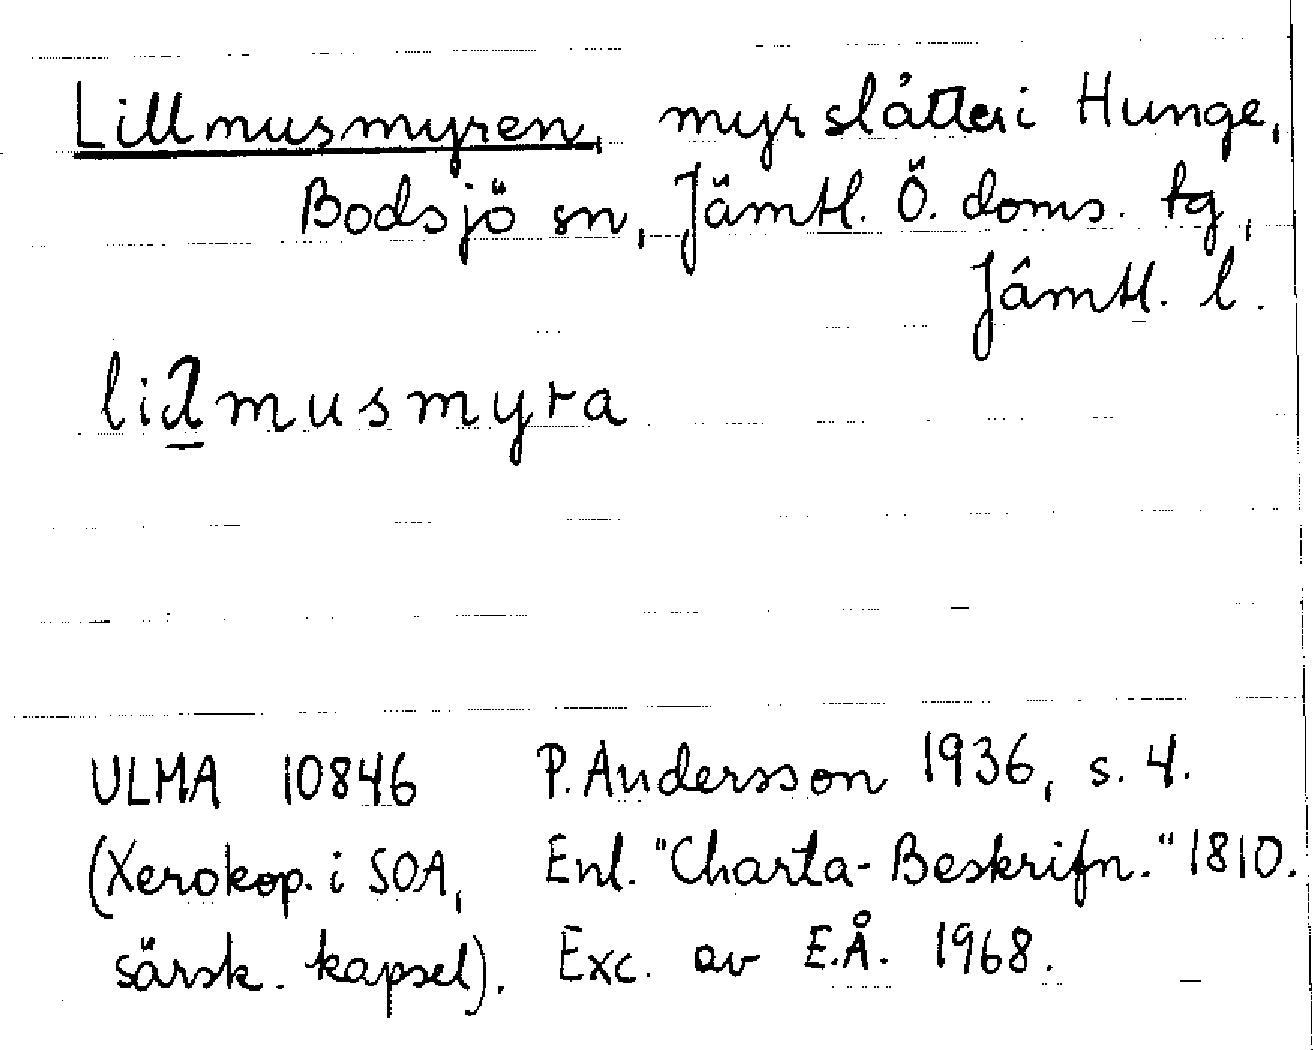 Lillmusmyren, myrslåtter i Hunge,
Bodsjö sn, Jämtl. Ö. doms. tg,
Jämtl. l.
liλ̲musmyra
ULMA 10846 P. Andersson 1936, s. 4.
(Xerokop. i SOA, Enl. "Charta-Beskrifn." 1810.
särsk. kapsel). Exc. av E.Å. 1968.